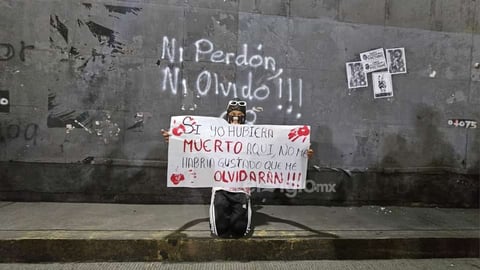 Ni Perdón,
Ni Olvido!!!
SI YO HUBIERA
MUERTO AQUI, NO ME
HABRIA GUSTADO QUE ME
OLVIDARÁN!!!